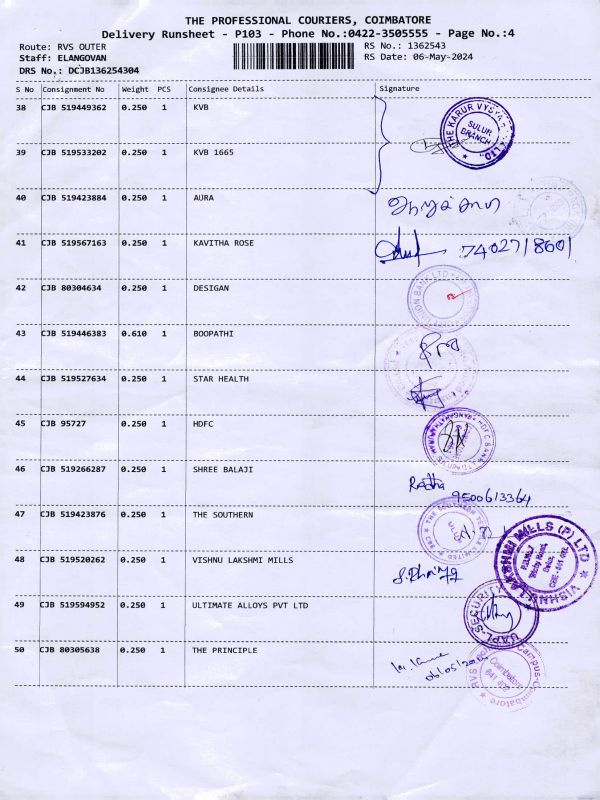 THE PROFESSIONAL COURIERS, COIMBATORE
Delivery Runsheet - P103 - Phone No.:0422-3505555 - Page No.:4
Route: RVS OUTER RS No.: 1362543
Staff: ELANGOVAN RS Date: 06-May-2024
DRS No.: DCJB136254304
S No Consignment No Weight PCS Consignee Details Signature
38 CJB 519449362 0.250 1 KVB
THE KARUR VYSYA BANK LTD
SULUR BRANCH
39 CJB 519533202 0.250 1 KVB 1665
40 CJB 519423884 0.250 1 AURA
41 CJB 519567163 0.250 1 KAVITHA ROSE 7402718601
42 CJB 80304634 0.250 1 DESIGAN
UNION BANK LTD
43 CJB 519446383 0.610 1 BOOPATHI
44 CJB 519527634 0.250 1 STAR HEALTH
45 CJB 95727 0.250 1 HDFC
HDFC BANK LTD
46 CJB 519266287 0.250 1 SHREE BALAJI Radha
9500613364
47 CJB 519423876 0.250 1 THE SOUTHERN
THE SOUTHERN
LIMITED
48 CJB 519520262 0.250 1 VISHNU LAKSHMI MILLS
VISHNU LAKSHMI MILLS (P) LTD
49 CJB 519594952 0.250 1 ULTIMATE ALLOYS PVT LTD
UAPL-SECURITY
50 CJB 80305638 0.250 1 THE PRINCIPLE
RVS Campus-Coimbatore
Coimbatore
641 402